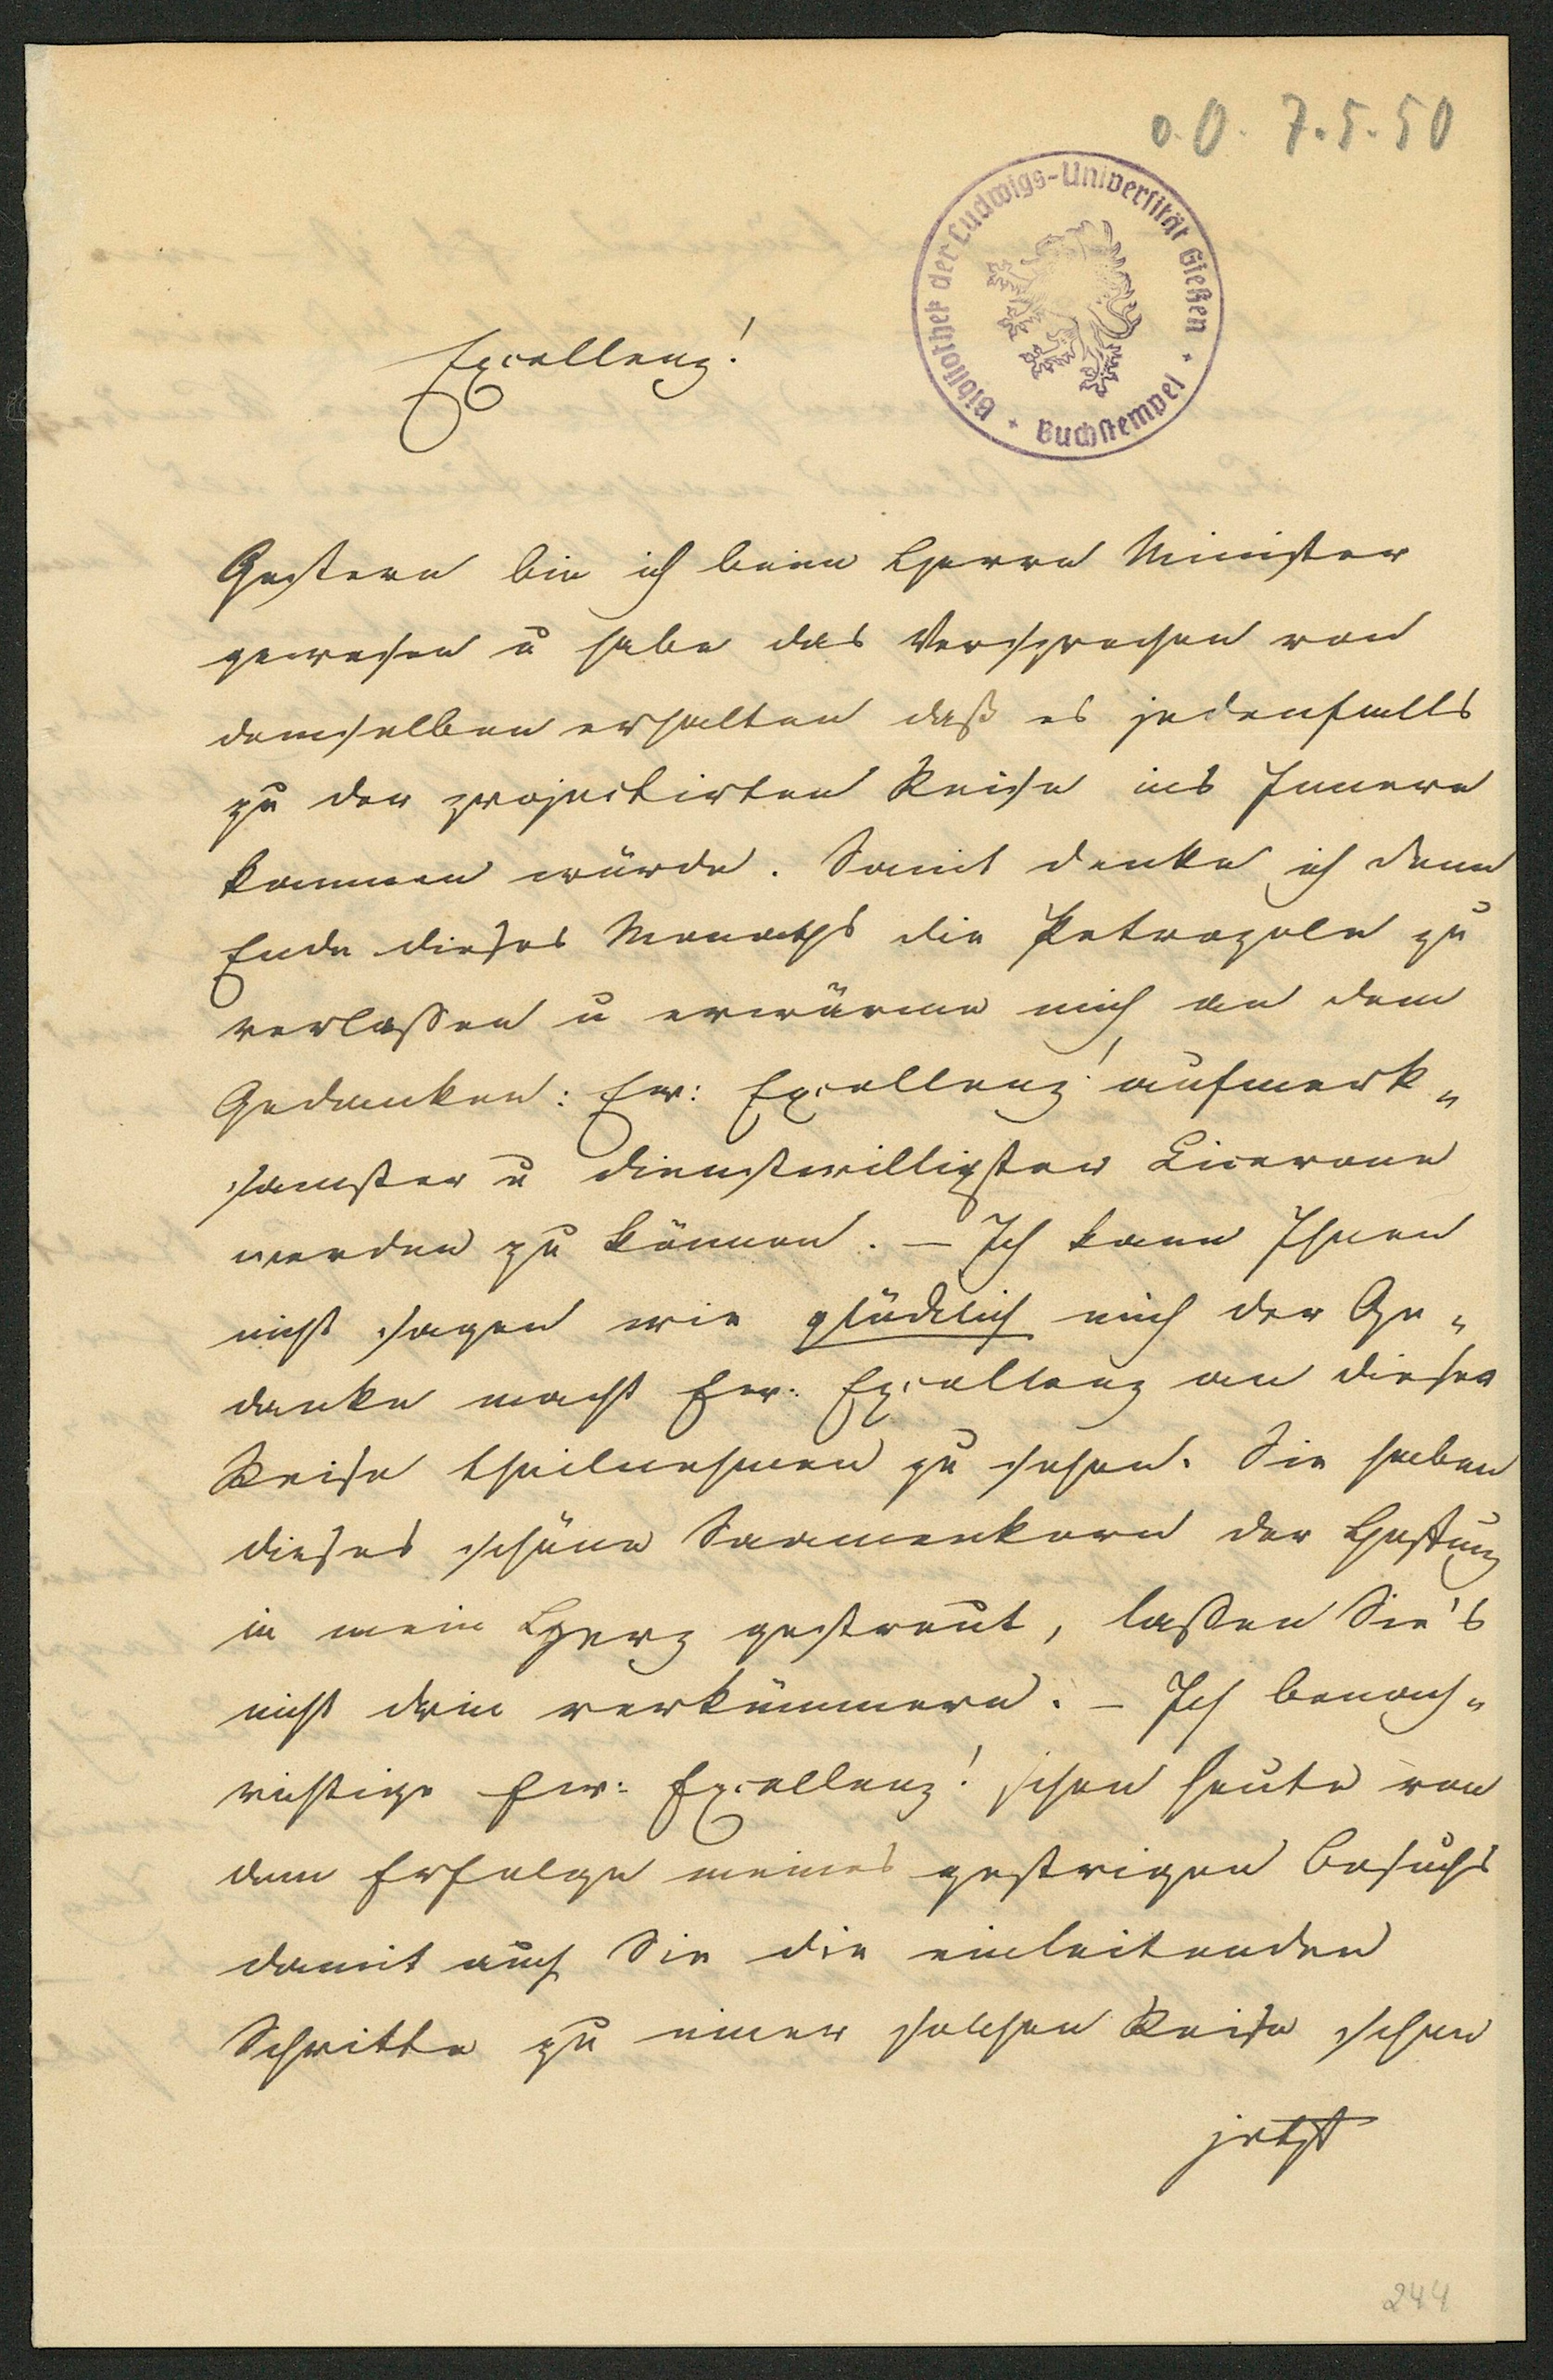 o. O. 7.5.50
Bibliothek der Ludwigs-Universität Gießen * Buchstempel *
Excellenz!
Gestern bin ich beim Herrn Minister
gewesen u habe das Versprechen von
demselben erhalten daß es jedenfalls
zu der projectirten Reise ins Innere
kommen würde. Somit denke ich denn
Ende dieses Monaths die Petropole zu
verlassen u erwärme mich an dem
Gedanken: Ew: Excellenz! aufmerk„
samster u dienstwilligster Cicerone
werden zu können. – Ich kann Ihnen
nicht sagen wie glücklich mich der Ge„
danke macht Ew: Excellenz an dieser
Reise theilnehmen zu sehen. Sie haben
dieses schöne Saamenkorn der Hoffnung
in mein Herz gestreut, lassen Sie's
nicht drin verkümmern. – Ich benach„
richtige Ew: Excellenz! schon heute von
dem Erfolge meines gestrigen Besuchs
damit auch Sie die einleitenden
Schritte zu einer solchen Reise schon
jetzt
244